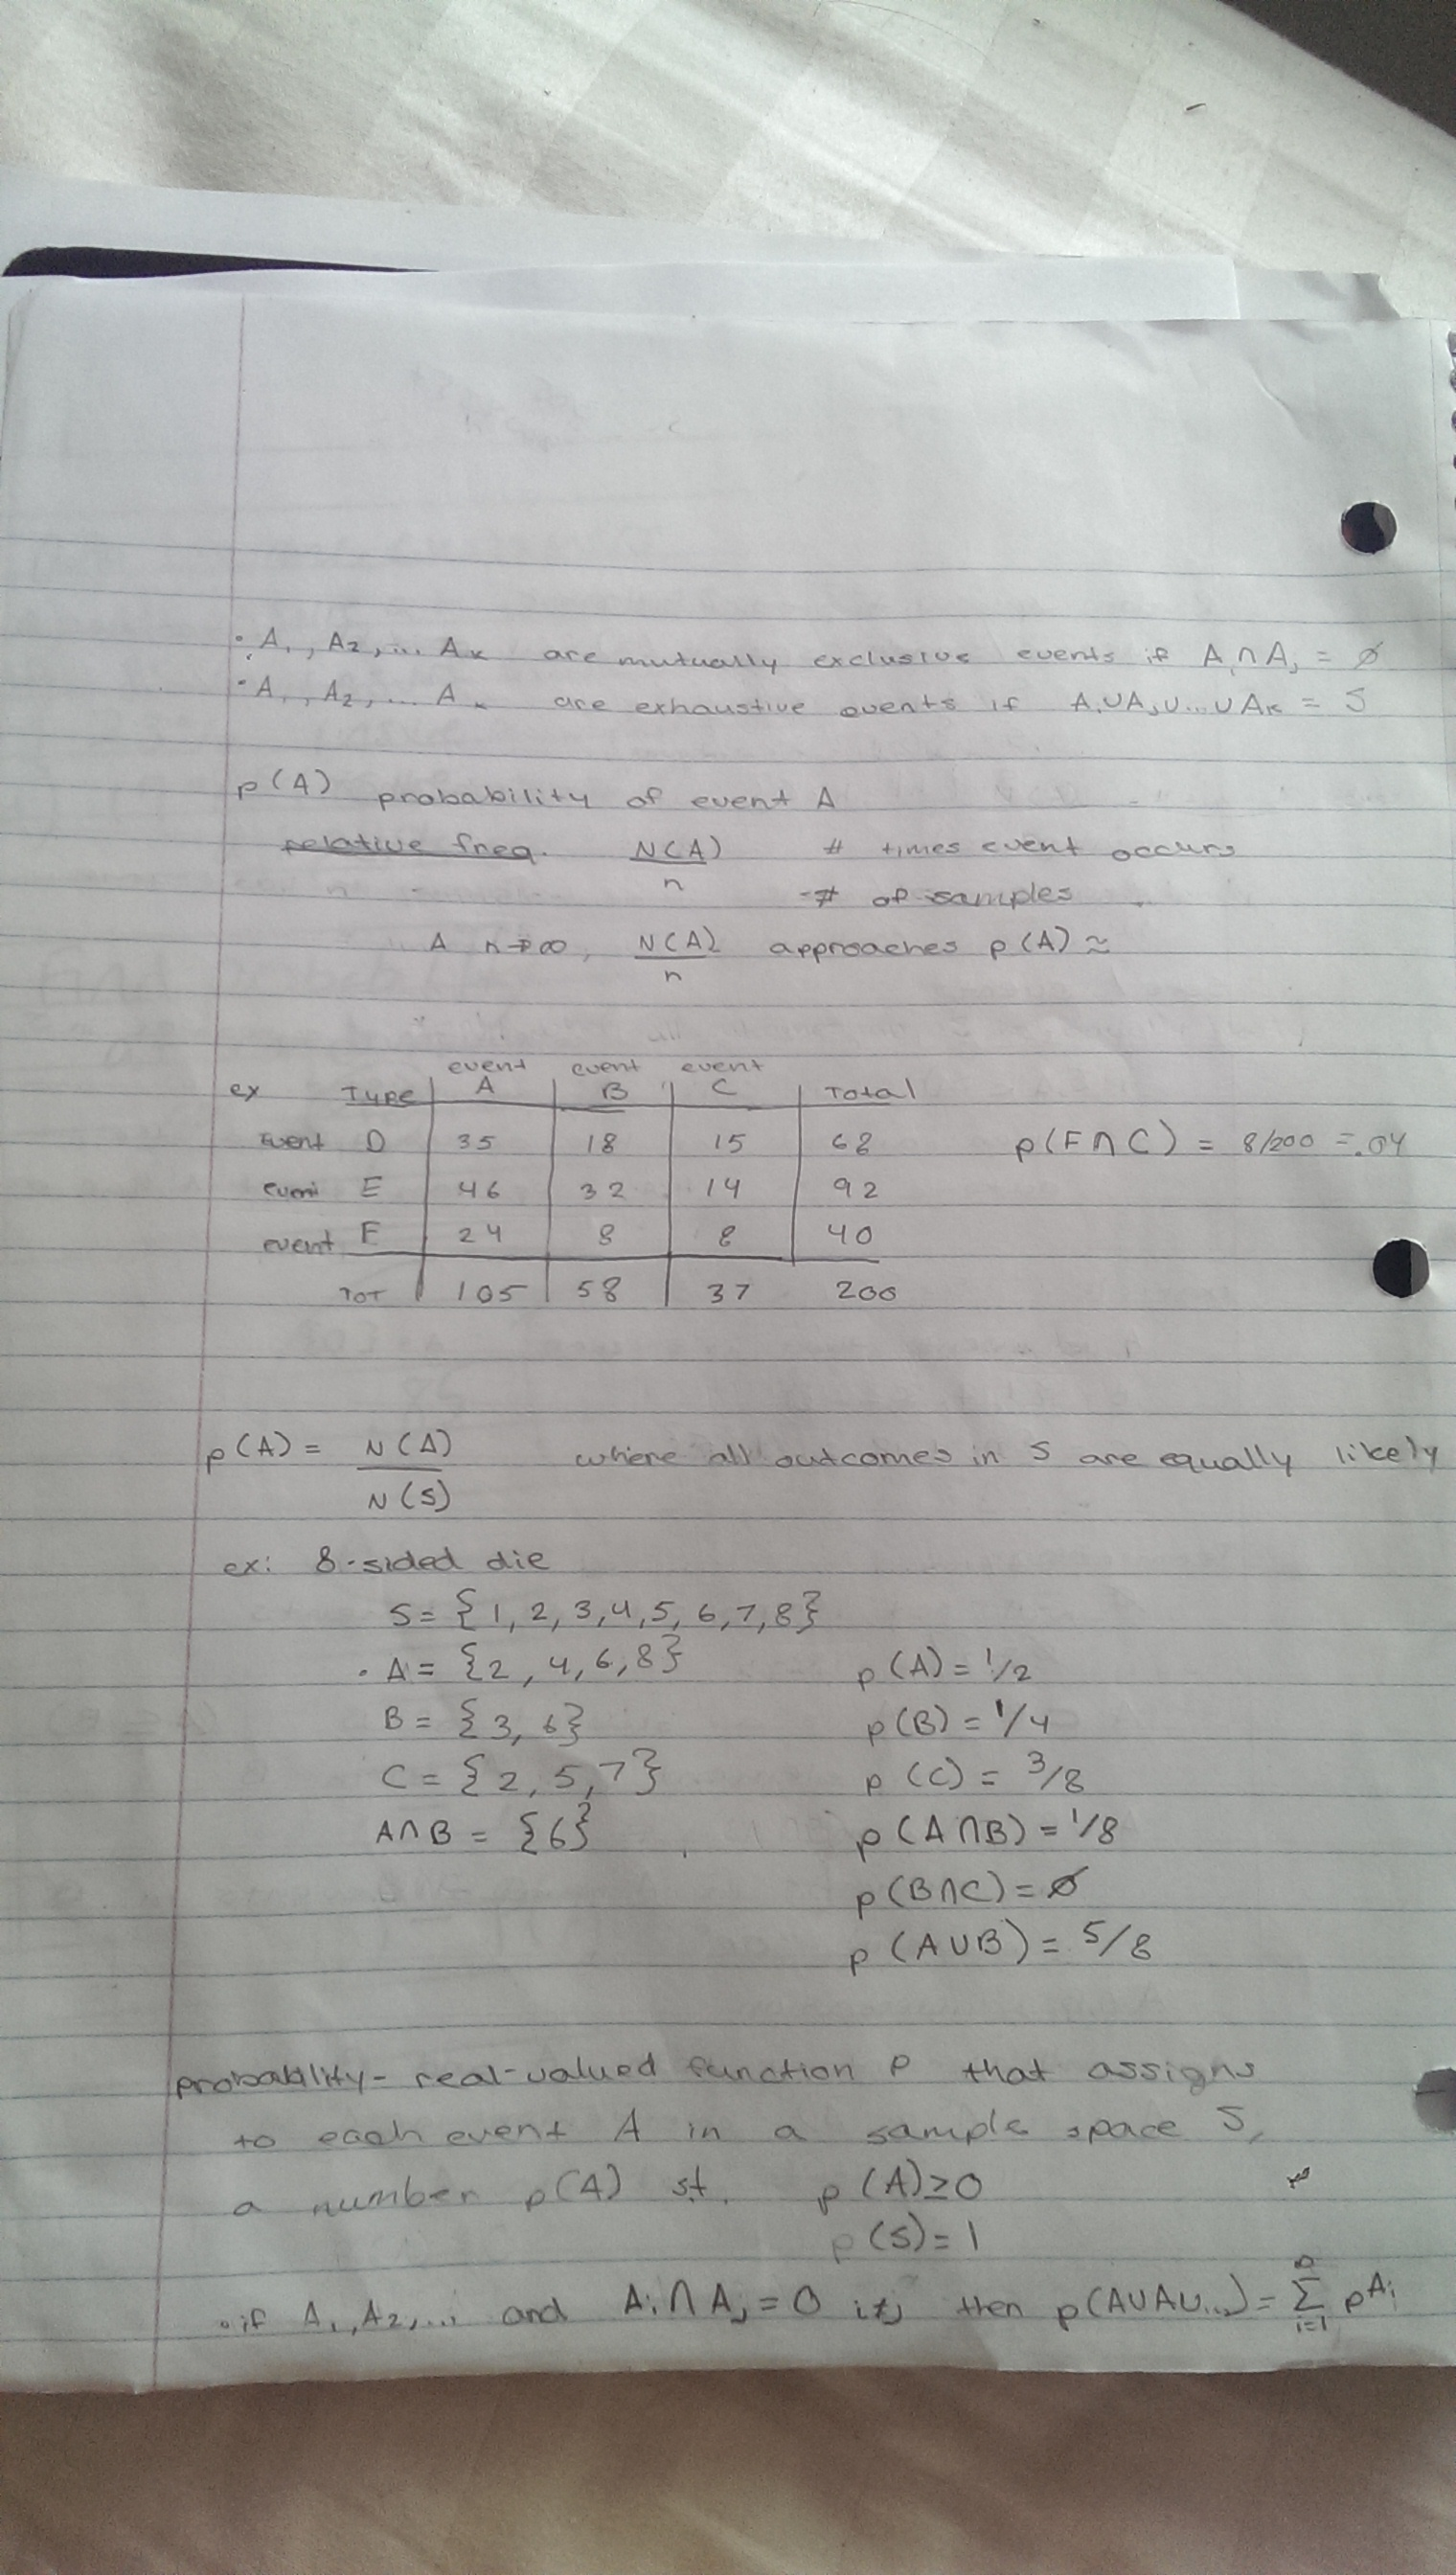 • A₁, A₂, ... Aₖ are mutually exclusive events if Aᵢ∩Aⱼ = ∅
• A₁, A₂, ... Aₖ are exhaustive events if A₁∪A₂∪...∪Aₖ = S
p(A) probability of event A
relative freq. N(A)/n # times event occurs
# of samples
A n→∞, N(A)/n approaches p(A) ≈
event event event
ex Type A B C Total
Event D 35 18 15 68 p(F∩C) = 8/200 = .04
event E 46 32 14 92
event F 24 8 8 40
TOT 105 58 37 200
p(A) = N(A)/N(S) where all outcomes in S are equally likely
ex: 8-sided die
S = {1, 2, 3, 4, 5, 6, 7, 8}
• A = {2, 4, 6, 8} p(A) = 1/2
B = {3, 6} p(B) = 1/4
C = {2, 5, 7} p(C) = 3/8
A∩B = {6} p(A∩B) = 1/8
p(B∩C) = ∅
p(A∪B) = 5/8
probability - real-valued function P that assigns
to each event A in a sample space S,
a number p(A) st. p(A) ≥ 0
p(S) = 1
• if A₁, A₂, ... and Aᵢ∩Aⱼ = 0 i≠j then p(A∪A∪...) = ∞∑i=1 pAᵢ